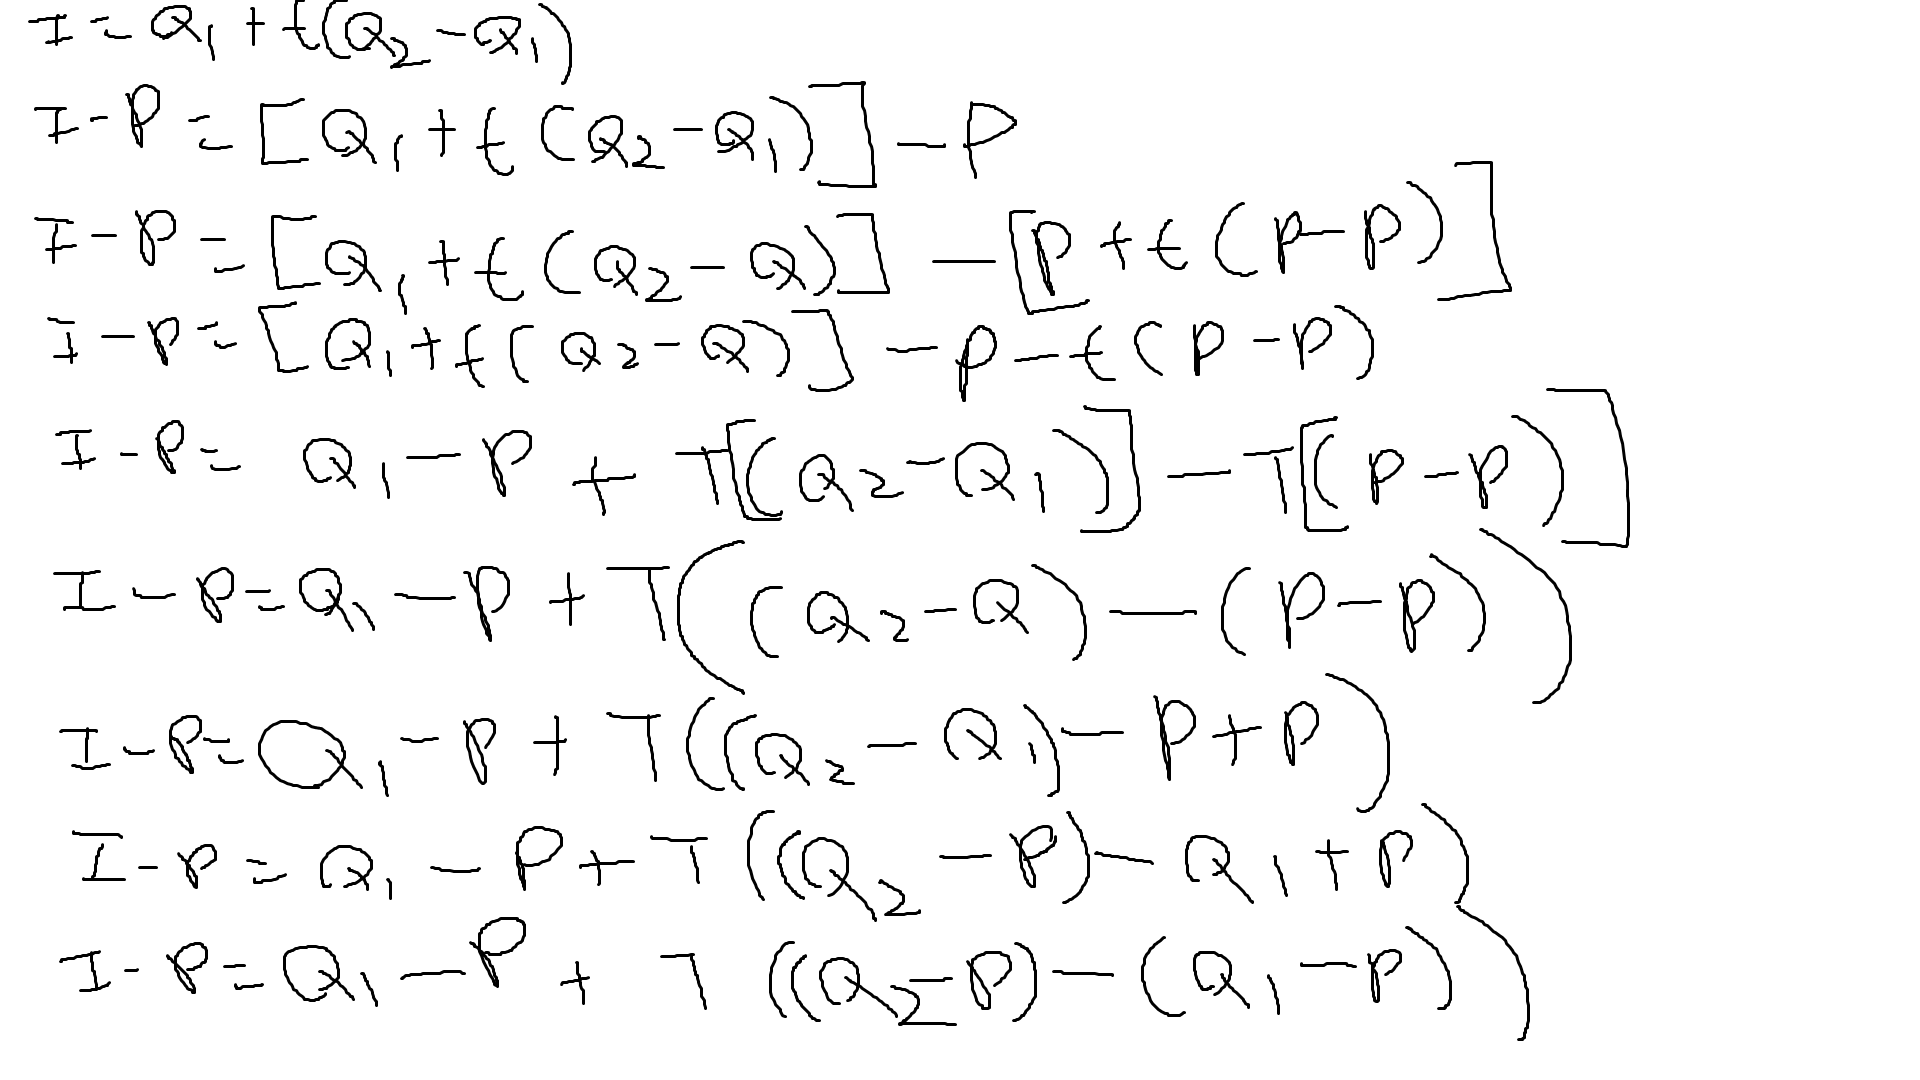 I = Q₁ + t(Q₂ - Q₁)
I - P = [Q₁ + t(Q₂ - Q₁)] - P
I - P = [Q₁ + t(Q₂ - Q)] - [P + t(P - P)]
I - P = [Q₁ + t(Q₂ - Q)] - P - t(P - P)
I - P = Q₁ - P + T[(Q₂ - Q₁)] - T[(P - P)]
I - P = Q₁ - P + T((Q₂ - Q) - (P - P))
I - P = Q₁ - P + T((Q₂ - Q₁) - P + P)
I - P = Q₁ - P + T((Q₂ - P) - Q₁ + P)
I - P = Q₁ - P + T((Q₂ - P) - (Q₁ - P))